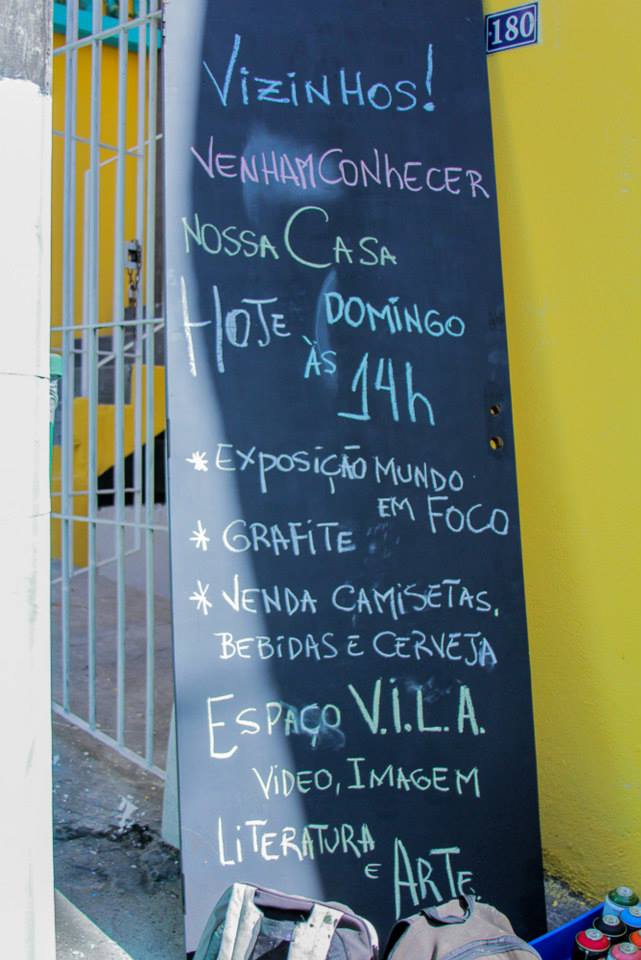 180
Vizinhos!
VENHAM CONhECER
NOSSA CASA
HOJE DOMINGO
ÀS 14h
* EXPOSIÇÃO MUNDO
EM FOCO
* GRAFITE
* VENDA CAMISETAS,
BEBIDAS E CERVEJA
ESPAÇO V.I.L.A.
VIDEO, IMAGEM
LITERATURA
E ARTE.